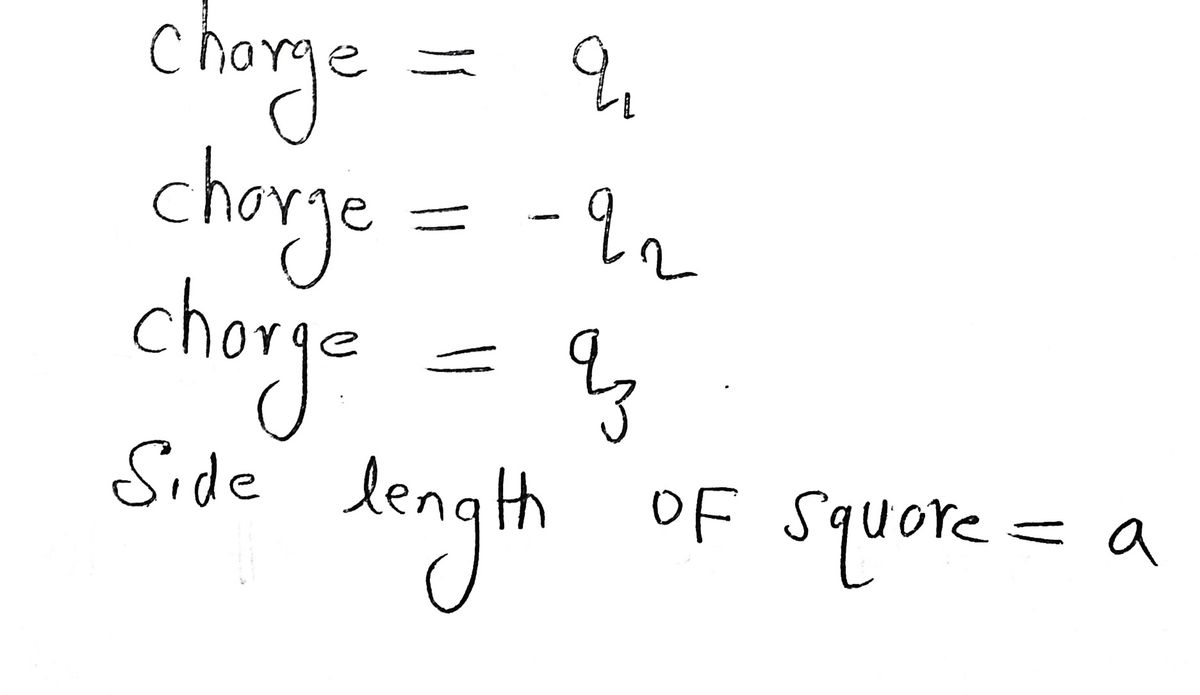 charge = q₁
charge = -q₂
charge = q₃
Side length OF square = a